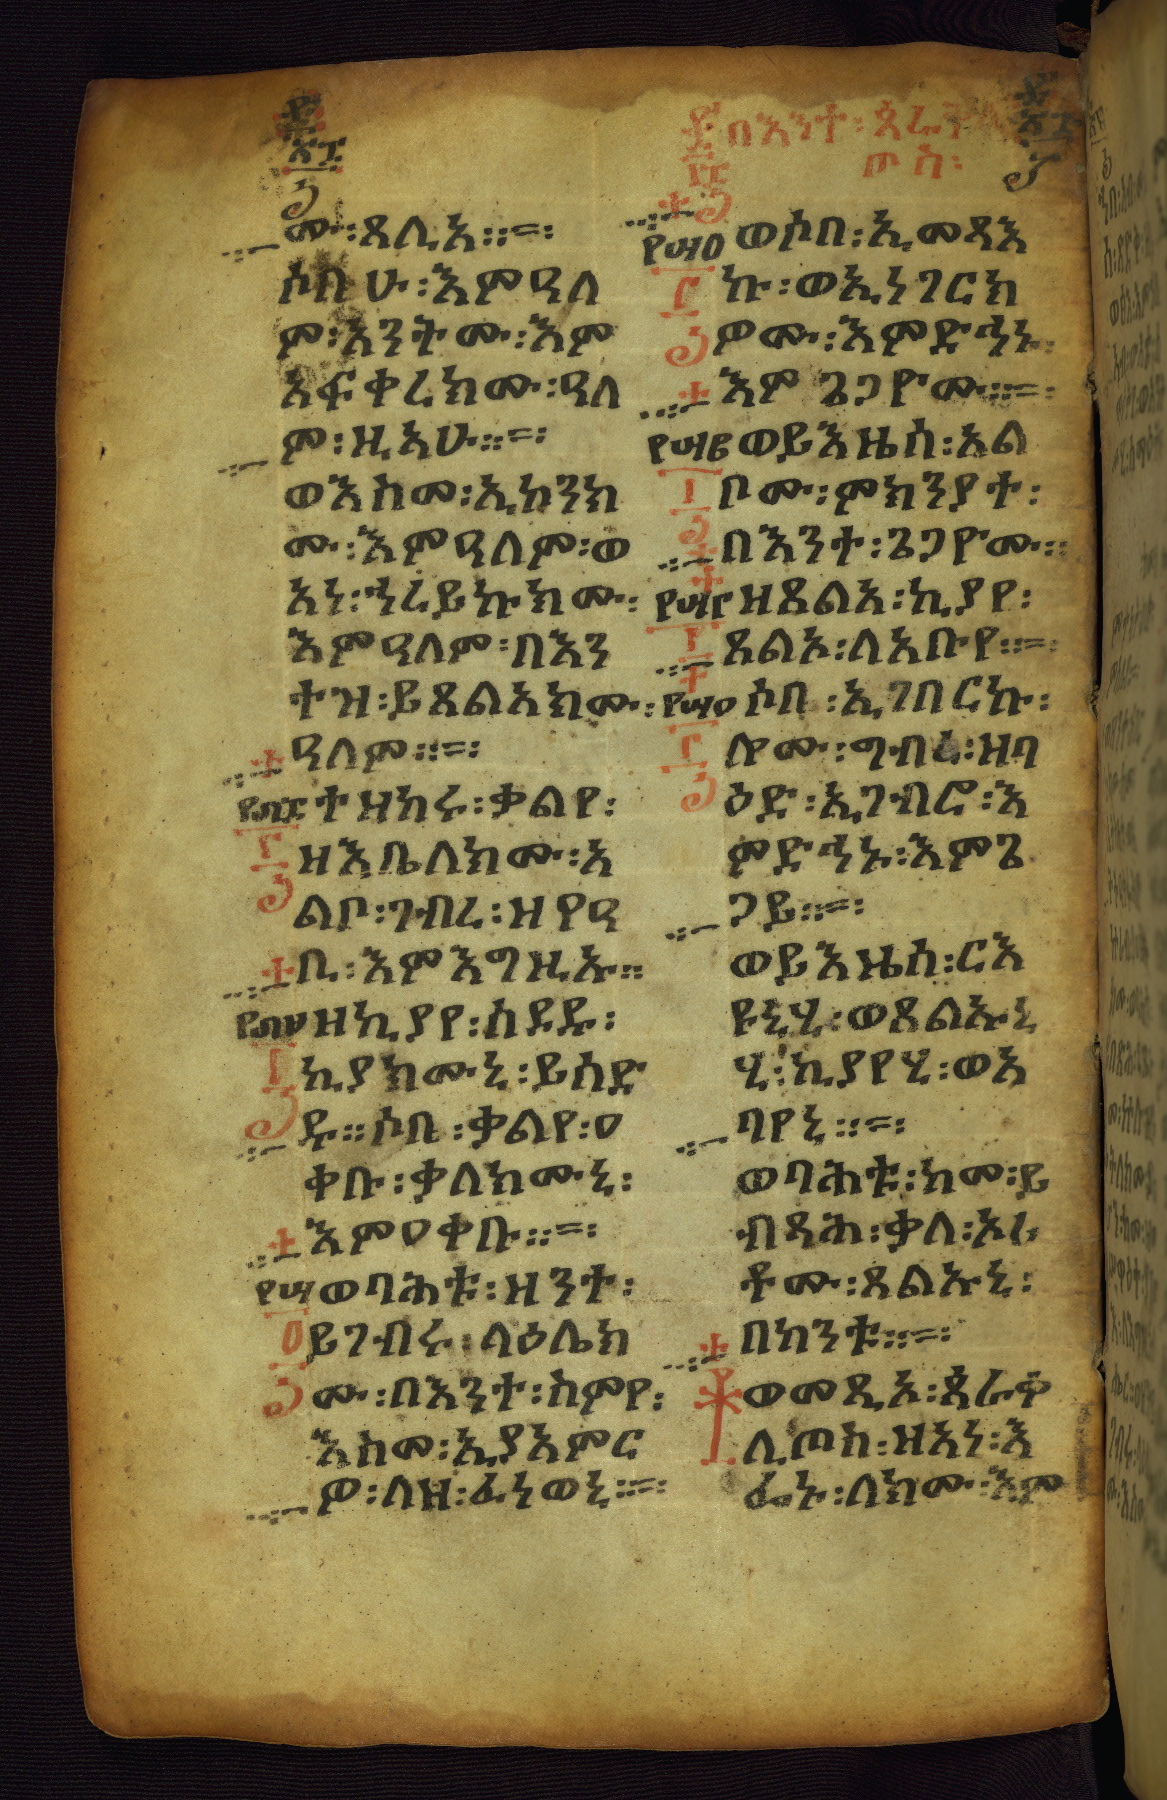 በእንተ፡ ጰራቅ
ጦስ፡
ሙ፡ጸሊአ፡፡=፡
ሶበሁ፡እምዓለ
ም፡አንትሙ፡እም
አፍቀረክሙ፡ዓለ
ም፡ዚአሁ፡፡=፡
ወእስመ፡ኢኮንክ
ሙ፡እምዓለም፡ወ
አነ፡ኀረይኩክሙ፡
እምዓለም፡በእን
ተዝ፡ይጸልአክሙ፡
ዓለም፡፡=፡
ተዘከሩ፡ቃልየ፡
ዘእቤለክሙ፡አ
ልቦ፡ገብረ፡ዘየዓ
ቢ፡እምእግዚኡ፡፡
ዘኪያየ፡ሰደዱ፡
ኪያክሙኒ፡ይሰድ
ዱ፡፡ሶበ፡ቃልየ፡ዐ
ቀቡ፡ቃለክሙኒ፡
እምዐቀቡ፡፡=፡
ወባሕቱ፡ዘንተ፡
ይገብሩ፡ላዕሌክ
ሙ፡በእንተ፡ስምየ፡
እስመ፡ኢያአምር
ዎ፡ለዘ፡ፈነወኒ፡፡=፡
ወሶበ፡ኢመጻእ
ኩ፡ወኢነገርክ
ዎሙ፡እምድኅኑ፡
እም ጌጋዮሙ፡፡=፡
ወይእዜሰ፡አል
ቦሙ፡ምክንያተ፡
በእንተ፡ጌጋዮሙ፡፡
ዘጸልአ፡ኪያየ፡
ጸልኦ፡ለአቡየ፡፡=፡
ሶበ፡ኢገበርኩ፡
ሎሙ፡ግብረ፡ዝባ
ዕድ፡ኢገብሮ፡እ
ምድኅኑ፡እምጌ
ጋይ፡፡=፡
ወይእዜሰ፡ርእ
ዩኒሂ፡ወጸልኡኒ
ሂ፡ኪያየሂ፡ወአ
ባየኒ፡፡=፡
ወባሕቱ፡ከመ፡ይ
ብጻሕ፡ቃለ፡ኦሪ
ቶሙ፡ጸልኡኒ፡
በከንቱ፡፡=፡
ወመጺኦ፡ጰራቅ
ሊጦስ፡ዘአነ፡እ
ፌኑ፡ለክሙ፡እም